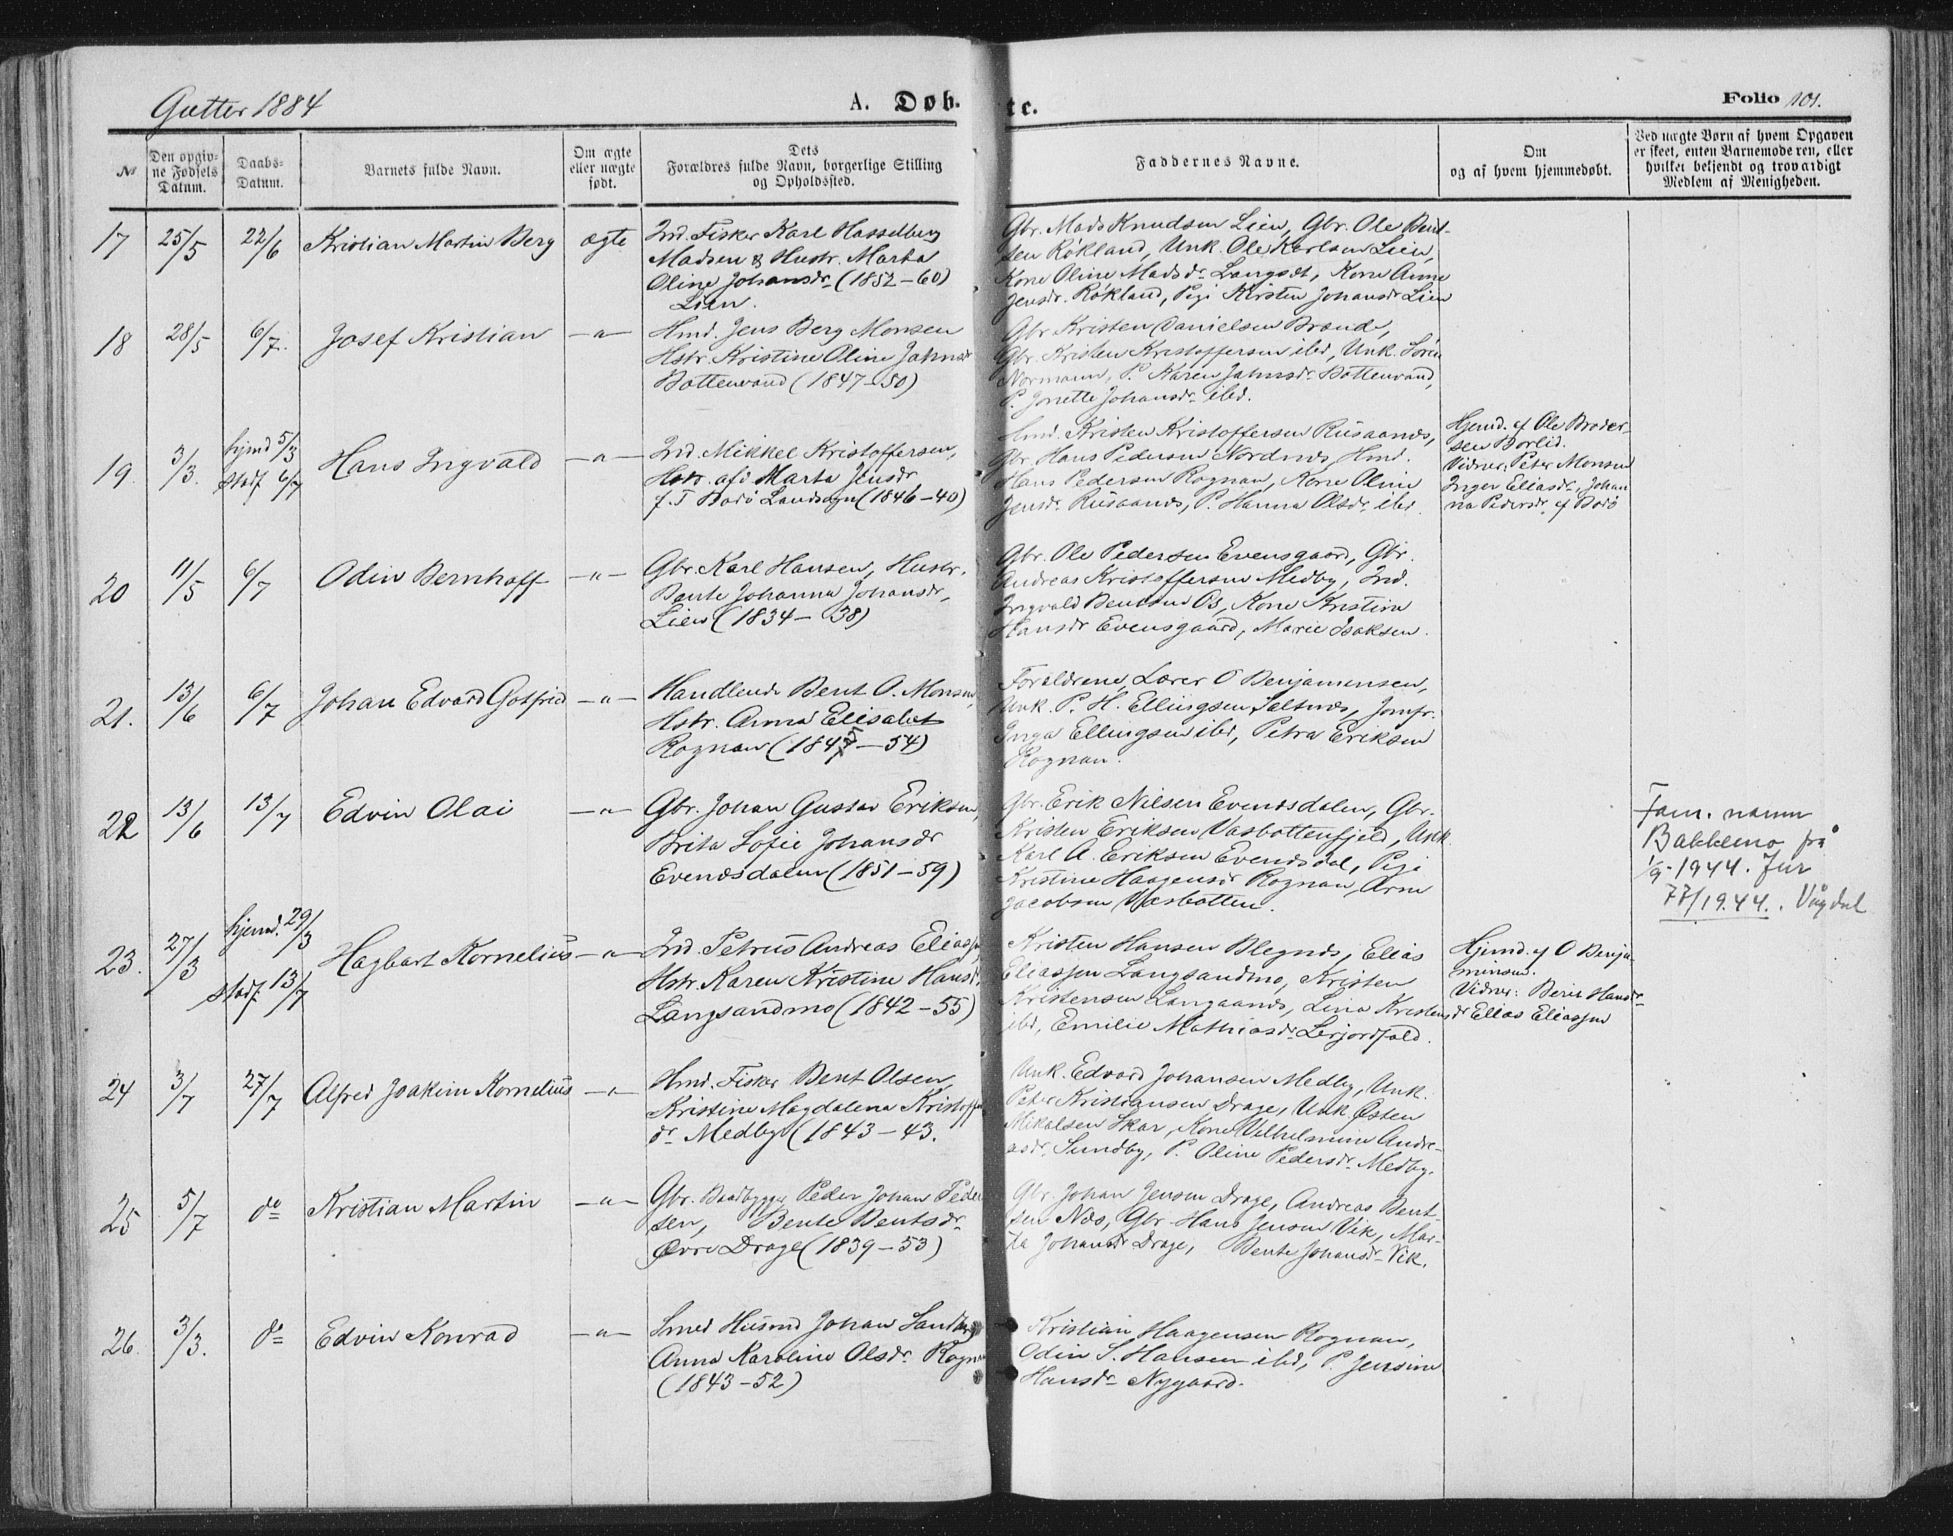 Gutter 1884
A. Døb-
te.
Folio 101.
№
Den opgiv-
ne Fødsels
Datum.
Daabs-
Datum.
Barnets fulde Navn.
Om ægte
eller uægte
født.
Dets
Forældres fulde Navn, borgerlige Stilling
og Opholdssted.
Faddernes Navne.
Om
og af hvem hjemmedøbt.
Ved uægte Børn af hvem Opgaven
er skeet, enten Barnemoderen, eller
hvilket bekjendt og troværdigt
Medlem af Menigheden.
17
25/5
22/6
Kristian Martin Berg
ægte
Ind. Fisker Karl Hasselberg
Madsen & Hustr. Marta
Oline Johansdr (1852-60)
Lien.
Gbr. Mads Knudsen Lien, Gbr. Ole Bent-
sen Røkland, Unk. Ole Karlsen Lien,
Kone Oline Madsdr Langset, Kone Anne
Jensdr. Røkland, Pigi Kirsten Johansdr Lien
18
28/5
6/7.
Josef Kristian
-"-
Hmd. Jens Berg Monsen
Hstr. Kristine Oline Jahnsdr
Bottenvand (1847-50)
Gbr Kristen Danielsen Brænde,
Gbr. Kristen Kristoffersen ibd, Unk. Søren
Normann, P. Karen Jahnsdr Bottenvand,
P. Jonette Johansdr ibd.
19.
3/3.
hjmd 5/3
stadf 6/7
Hans Ingvald
-"-
Ind. Mikkel Kristoffersen,
Hstr. afd Marta Jensdr
f. T Bodø Landsogn (1846-40)
Hmd. Kristen Kristoffersen Rusaanes,
Gbr. Hans Pedersen Nordnes, Hmd.
Hans Pedersen Rognan, Kone Oline
Jensdr. Rusaanes, P. Hanna Olsdr ibd.
Hjmd. af Ole Broder-
sen Borlid.
Vidner: Peter Monsen
Inger Eliasdr, Johan
na Pedersdr af Bodø
20
11/5
6/7
Odin Bernhoff
-"-
Gbr. Karl Hansen, Hustr.
Bente Johanna Johansdr,
Lien (1834-38)
Gbr. Ole Pedersen Evensgaard, Gbr.
Andreas Kristoffersen Medby, Ind.
Ingvald Bentsen Os, Kone Kristine
Hansdr Evensgaard, Marie Isaksen.
21.
13/6
6/7
Johan Edvard Gotfried
-"-
Handlende Bent O. Monsen,
Hstr. Anna Elisabet
Rognan (1845-54)
Forældrene, Lærer O Benjaminsen,
Unk. P. H. Ellingsen Saltnes, Jomfr.
Inga Ellingsen ibd, Petra Eriksen
Rognan.
22
13/6
13/7
Edvin Olai
-"-
Gbr. Johan Gustav Eriksen,
Brita Sofie Johansdr
Evenesdalen (1851-59)
Gbr. Erik Nilsen Evenesdalen, Gbr.
Kristen Eriksen Vasbottenfjeld, Unk
Karl A. Eriksen Evenesdal, Pigi
Kristine Haagensdr Rognan, Arne
Jacobsen Vasbotten.
Fam. namn
Bakkemo frå
1/9-1944. Jur
77/1944. Vågdal
23.
27/3
hjemd. 29/3
stadf. 13/7
Hagbart Kornelius
-"-
Ind. Petrus Andreas Eliassen
Hstr. Karen Kristine Hansdr
Langsandmo (1842-55)
Kristen Hansen Blegnes, Elias
Eliassen Langsandmo, Kristen
Kristensen Langaanes, Lina Kristensdr
ibd, Emilie Mathiasdr Lerjordfald.
Hjmd. af O Benja-
minsen.
Vidner: Berit Hansdr
Elias Eliassen
24
3/7
27/7
Alfred Joakim Kornelius
-"-
Hmd. Fisker Bent Olsen,
Kristine Magdalena Kristoffer
dr Medby (1843-43.
Unk. Edvard Johansen Medby, Unk.
Peter Kristiansen Drage, Unk. Østen
Mikalsen Skar, Kone Vilhelmine Andre-
asdr Sundby, P. Oline Pedersdr Medby.
25
5/7
do
Kristian Martin
-"-
Gbr. Baadbygger Peder Johan Peder
sen, Bente Bentsdr
Øvre Drage (1839-53)
Gbr. Johan Jensen Drage, Andreas Bent-
sen Nes, Gbr. Hans Jensen Vik, Mar-
ta Johansdr Drage, Bente Johansdr Vik.
26.
3/3.
do
Edvin Konrad
-"-
Smed Husmd Johan Sandberg
Anna Karoline Olsdr. Rognan
(1843-52)
Kristian Haagensen Rognan,
Odin S. Hansen ibd, P. Jensine
Hansdr Nygaard.